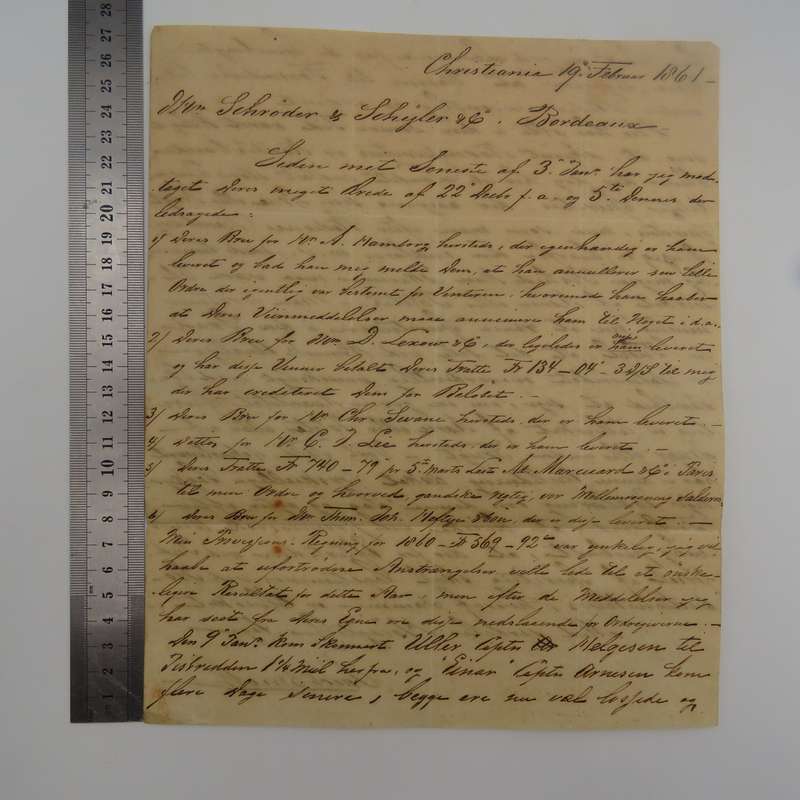 Christiania 19 Februar 1861
Schröder & Schÿler & Co. Bordeaux
Siden mit Seneste af 3 Janr. har jeg mod-
taget Deres meget Ærede af 22 Decbr f. a. og 5te Dennes der
ledsagede:
1) Deres Brev for Hr A. Hamborg hersteds, der egenhændig er ham
leveret og bad han mig melde Dem, at han annullerer sin lille
Ordre der egentlig var bestemt for Vinteren, hvorimod han haaber
at Deres Viinmeddelelser maae animere ham til Noget i d. a.
2) Deres Brev for D. Lexow & Co, der ligeledes er leveret
og har disse Venner betalt Deres Tratte Fr 134 - 04 - til mig
der har crediteret Dem for Beløbet. -
3) Deres Brev for Hr Chr. Svane hersteds, der er ham leveret. -
4) Dette for Hr C. D. Lee hersteds, der er ham leveret. -
5) Deres Tratte Fr 740 - 79 pr 5te Marts Ad. Marcuard & Co i Paris
til min Ordre og hvorved ganske rigtig vor Mellemregning salderes
6) Deres Brev for Thom. Joh. Heftye & Søn, der er disse leveret. -
Min Provisions-Regning for 1860 - Fr 569 - 92 var jeg vil
haabe at ufortrødne Anstrængelser ville lede til et ønske-
ligere Resultat for dette Aar, men efter de Meddelelser jeg
har seet fra Deres Egne ere disse nedslaaende for Ordregiverne. -
Den 9 Janr. kom Skonnert "Uller" Captn Helgesen til
1 1/4 Miil herfra, og "Einar" Captn Arnesen kom
flere Dage senere, begge ere nu vel lossede og